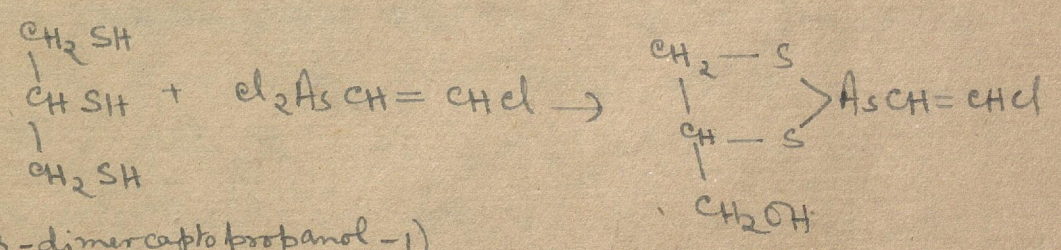 CH₂ SH
CH SH + Cl₂As CH = CHCl → 
CH₂ SH
CH₂ — S
CH — S > AsCH = CHCl
CH₂OH
-dimercaptopropanol-1)